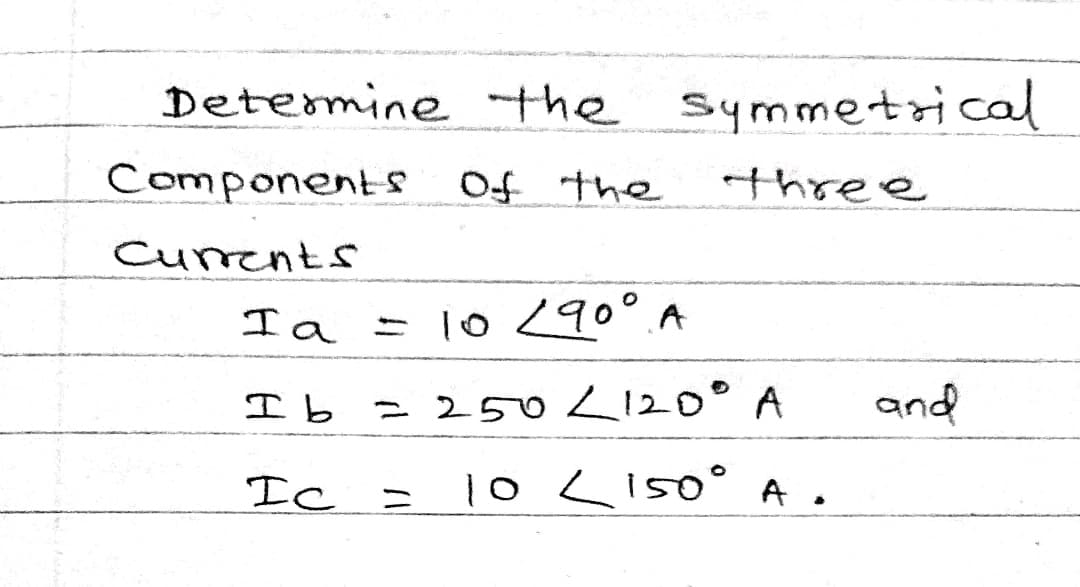 Determine the symmetrical
Components Of the three
Currents
Ia = 10 ∠90° A
Ib = 250 ∠120° A and
Ic = 10 ∠150° A.